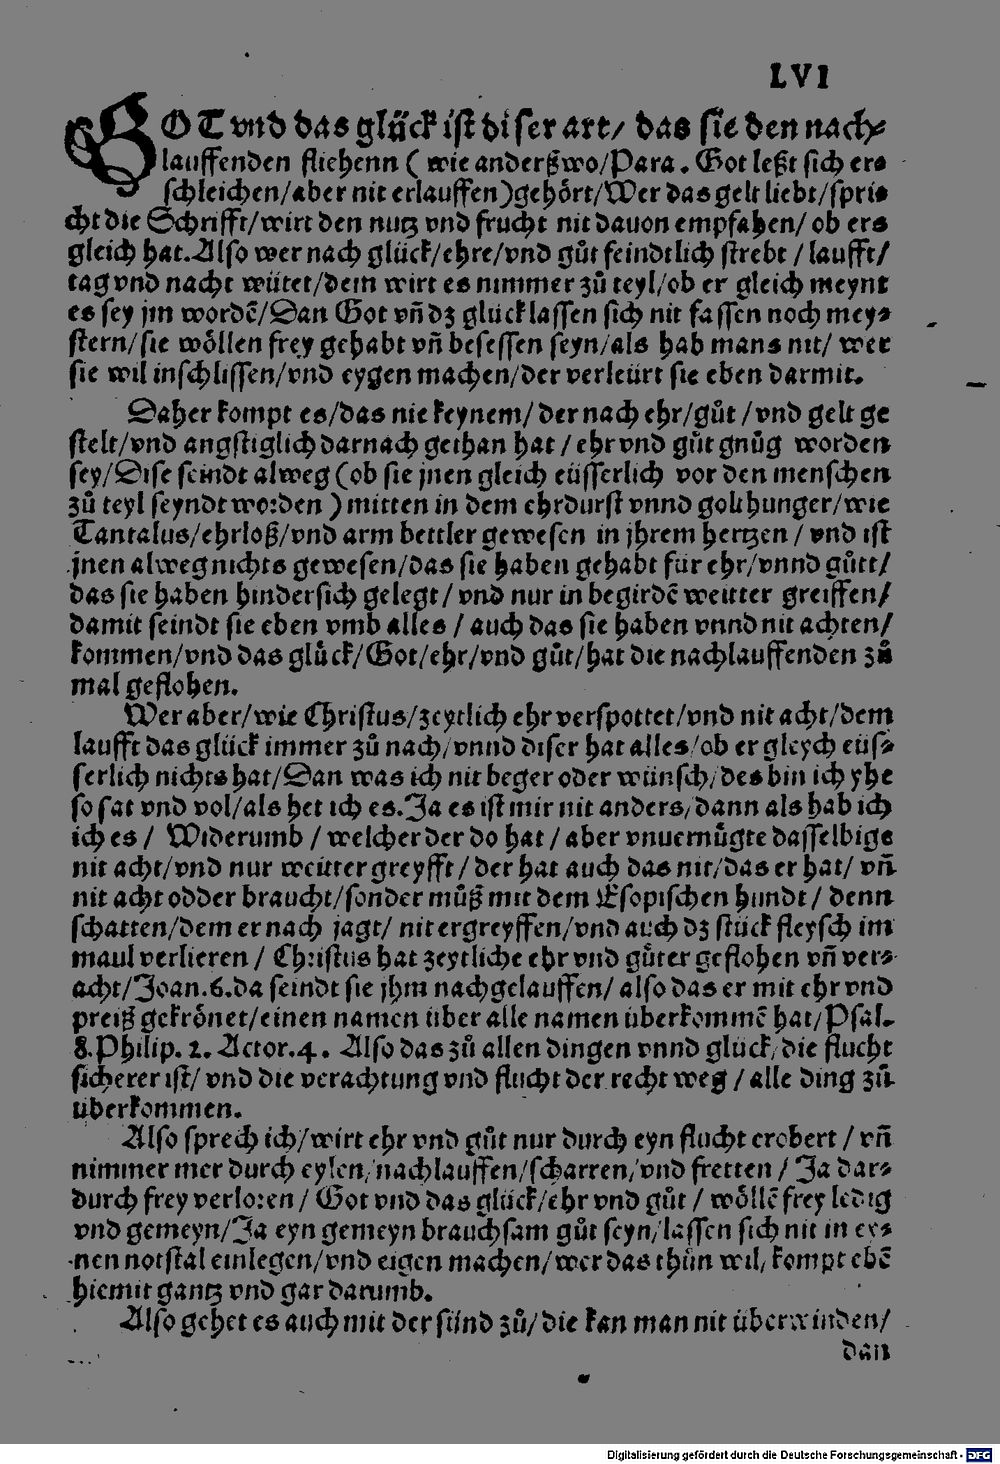 LVI
GOT vnd das glück ist diser art/ das sie den nach-
lauffenden fliehenn ( wie anderßwo/Para. Got leßt sich er-
schleichen/aber nit erlauffen)gehört/Wer das gelt liebt/spri-
cht die Schrifft/wirt den nutz vnd frucht nit dauon empfahen/ ob ers
gleich hat. Also wer nach glück/ehre/vnd gůt feindtlich strebt / laufft/
tag vnd nacht wütet/dem wirt es nimmer zů teyl/ob er gleich meynt
es sey jm wordē/Dan Got vñ dz glück lassen sich nit fassen noch mey-
stern/sie wöllen frey gehabt vñ besessen seyn/als hab mans nit/ wer
sie wil inschlissen/vnd eygen machen/der verleürt sie eben darmit.
Daher kompt es/das nie keynem/ der nach ehr/gůt /vnd gelt ge
stelt/vnd angstiglich darnach gethan hat / ehr vnd gůt gnůg worden
sey/Dise seindt alweg (ob sie jnen gleich eüsserlich vor den menschen
zů teyl seyndt worden ) mitten in dem ehrdurst vnnd golthunger/wie
Tantalus/ehrloß/vnd arm bettler gewesen in jhrem hertzen / vnd ist
jnen alweg nichts gewesen/das sie haben gehabt für ehr/vnnd gůtt/
das sie haben hindersich gelegt/ vnd nur in begirdē weitter greiffen/
damit seindt sie eben vmb alles / auch das sie haben vnnd nit achten/
kommen/vnd das glück/Got/ehr/vnd gůt/hat die nachlauffenden zů
mal geflohen.
Wer aber/wie Christus/zeytlich ehr verspottet/vnd nit acht/dem
laufft das glück immer zů nach/vnnd diser hat alles/ob er gleych eüs-
serlich nichts hat/Dan was ich nit beger oder wünsch/des bin ich yhe
so sat vnd vol/als het ich es. Ja es ist mir nit anders/dann als hab ich
ich es / Widerumb / welcher der do hat / aber vnuernůgte dasselbige
nit acht/vnd nur weitter greyfft / der hat auch das nit/das er hat/ vñ
nit acht odder braucht/sonder můß mit dem Esopischen hundt / denn
schatten/dem er nach jagt/ nit ergreyffen/vnd auch dz stück fleysch im
maul verlieren / Christus hat zeytliche ehr vnd gůter geflohen vñ ver-
acht/Joan.6.da seindt sie jhm nachgelauffen/ also das er mit ehr vnd
preiß gekrönet/einen namen über alle namen überkommē hat/Psal.
8. Philip. 2. Actor.4. Also das zů allen dingen vnnd glück/die flucht
sicherer ist/ vnd die verachtung vnd flucht der recht weg / alle ding zů
überkommen.
Also sprech ich/wirt ehr vnd gůt nur durch eyn flucht erobert / vñ
nimmer mer durch eylen/nachlauffen/scharren/vnd fretten / Ja dar-
durch frey verloren / Got vnd das glück/ehr vnd gůt / wöllē frey ledig
vnd gemeyn/Ja eyn gemeyn brauchsam gůt seyn/lassen sich nit in ey-
nen notstal einlegen/vnd eigen machen/wer das thůn wil/ kompt ebē
hiemit gantz vnd gar darumb.
Also gehet es auch mit der sünd zů/ die kan man nit überwinden/
dan
Digitalisierung gefördert durch die Deutsche Forschungsgemeinschaft - DFG